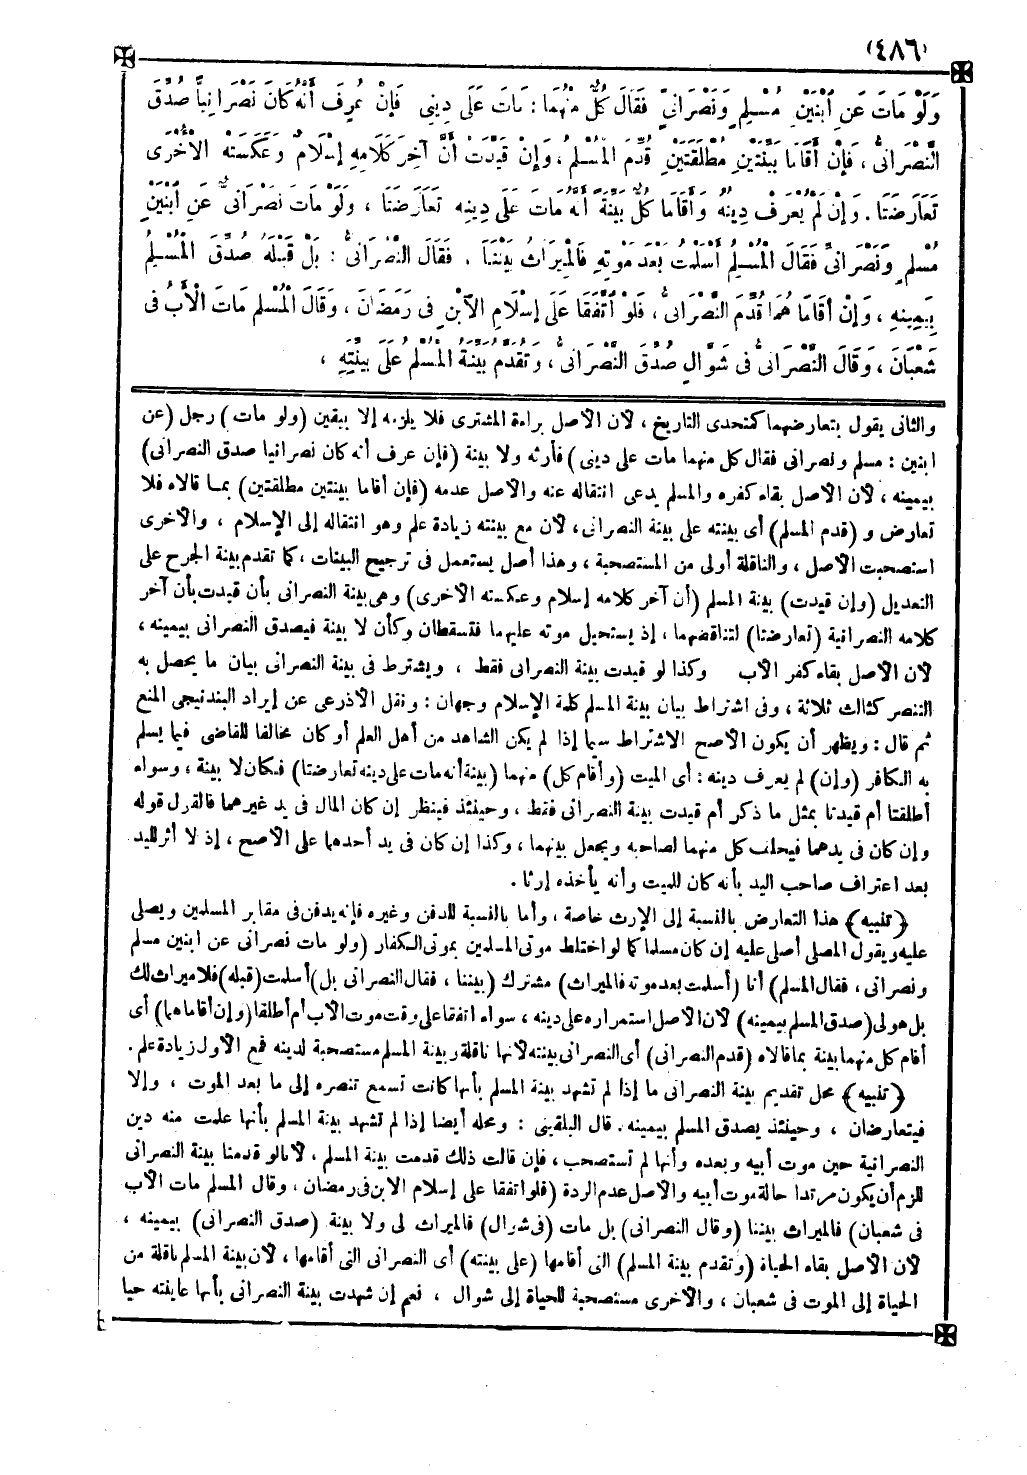 (٤٨٦)
وَلَوْ مَاتَ عَنِ ابْنَيْنِ مُسْلِمٍ وَنَصْرَانِيٍّ فَقَالَ كُلٌّ مِنْهُمَا : مَاتَ عَلَى دِينِي فَإِنْ عُرِفَ أَنَّهُ كَانَ نَصْرَانِيًّا صُدِّقَ
النَّصْرَانِيُّ ، فَإِنْ أَقَامَا بَيِّنَتَيْنِ مُطْلَقَتَيْنِ قُدِّمَ الْمُسْلِمُ ، وَإِنْ قَيَّدَتْ أَنَّ آخِرَ كَلَامِهِ إِسْلَامٌ وَعَكَسَتْهُ الْأُخْرَى
تَعَارَضَتَا . وَإِنْ لَمْ يُعْرَفْ دِينُهُ وَأَقَامَا كُلٌّ بَيِّنَةً أَنَّهُ مَاتَ عَلَى دِينِهِ تَعَارَضَتَا ، وَلَوْ مَاتَ نَصْرَانِيٌّ عَنِ ابْنَيْنِ
مُسْلِمٍ وَنَصْرَانِيٍّ فَقَالَ الْمُسْلِمُ أَسْلَمْتُ بَعْدَ مَوْتِهِ فَالْمِيرَاثُ بَيْنَنَا . فَقَالَ النَّصْرَانِيُّ : بَلْ قَبْلَهُ صُدِّقَ الْمُسْلِمُ
بِيَمِينِهِ ، وَإِنْ أَقَامَاهُمَا قُدِّمَ النَّصْرَانِيُّ ، فَلَوِ اتَّفَقَا عَلَى إِسْلَامِ الِابْنِ فِي رَمَضَانَ ، وَقَالَ الْمُسْلِمُ مَاتَ الْأَبُ فِي
شَعْبَانَ ، وَقَالَ النَّصْرَانِيُّ فِي شَوَّالٍ صُدِّقَ النَّصْرَانِيُّ ، وَتُقَدَّمُ بَيِّنَةُ الْمُسْلِمِ عَلَى بَيِّنَتِهِ ،
والثانى يقول بتعارضهما كمتحدى التاريخ ، لأن الأصل براءة المشترى فلا يلزمه إلا بيقين (ولو مات) رجل (عن
ابنين : مسلم ونصرانى فقال كل منهما مات على دينى) فأرثه ولا بينة (فإن عرف أنه كان نصرانيا صدق النصرانى)
بيمينه ، لأن الأصل بقاء كفره والمسلم يدعى انتقاله عنه والأصل عدمه (فإن أقاما بينتين مطلقتين) بما قالاه فلا
تعارض و (قدم المسلم) أى بينته على بينة النصرانى ، لأن مع بينته زيادة علم وهو انتقاله إلى الإسلام ، والأخرى
استصحبت الأصل ، والناقلة أولى من المستصحبة ، وهذا أصل يستعمل فى ترجيح البينات ، كما تقدم بينة الجرح على
التعديل (وإن قيدت) بينة المسلم (أن آخر كلامه إسلام وعكسته الأخرى) وهى بينة النصرانى بأن قيدت بأن آخر
كلامه النصرانية (تعارضتا) لتناقضهما ، إذ يستحيل موته عليهما فتسقطان وكأن لا بينة فيصدق النصرانى بيمينه ،
لأن الأصل بقاء كفر الأب وكذا لو قيدت بينة النصرانى فقط ، ويشترط فى بينة النصرانى بيان ما يحصل به
التنصر كثالث ثلاثة ، وفى اشتراط بيان بينة المسلم كلمة الإسلام وجهان : ونقل الأذرعى عن إيراد البندنيجى المنع
ثم قال : ويظهر أن يكون الأصح الاشتراط سيما إذا لم يكن الشاهد من أهل العلم أو كان مخالفا للقاضى فيما يسلم
به الكافر (وإن) لم يعرف دينه : أى الميت (وأقام كل) منهما (بينة أنه مات على دينه تعارضتا) فكأن لا بينة ، وسواء
أطلقتا أم قيدتا بمثل ما ذكر أم قيدت بينة النصرانى فقط ، وحينئذ فينظر إن كان المال فى يد غيرهما فالقول قوله
وإن كان فى يدهما فيحلف كل منهما لصاحبه ويجعل بينهما ، وكذا إن كان فى يد أحدهما على الأصح ، إذ لا أثر لليد
بعد اعتراف صاحب اليد بأنه كان للميت وأنه يأخذه إرثا .
﴿تنبيه﴾ هذا التعارض بالنسبة إلى الإرث خاصة ، وأما بالنسبة للدفن وغيره فإنه يدفن فى مقابر المسلمين ويصلى
عليه ويقول المصلى أصلى عليه إن كان مسلما كما لو اختلط موتى المسلمين بموتى الكفار (ولو مات نصرانى عن ابنين مسلم
ونصرانى ، فقال المسلم) أنا (أسلمت بعد موته فالميراث) مشترك (بيننا ، فقال النصرانى بل) أسلمت (قبله) فلا ميراث لك
بل هو لى (صدق المسلم بيمينه) لأن الأصل استمراره على دينه ، سواء اتفقا على وقت موت الأب أم أطلقا (وإن أقاماهما) أى
أقام كل منهما بينة بما قالاه (قدم النصرانى) أى النصرانى بينته لأنها ناقلة وبينة المسلم مستصحبة لدينه فمع الأول زيادة علم .
﴿تنبيه﴾ محل تقديم بينة النصرانى ما إذا لم تشهد بينة المسلم بأنها كانت تسمع تنصره إلى ما بعد الموت ، وإلا
فيتعارضان ، وحينئذ يصدق المسلم بيمينه . قال البلقينى : ومحله أيضا إذا لم تشهد بينة المسلم بأنها علمت منه دين
النصرانية حين موت أبيه وبعده وأنها لم تستصحب ، فإن قالت ذلك قدمت بينة المسلم ، لأنا لو قدمنا بينة النصرانى
للزم أن يكون مرتدا حالة موت أبيه والأصل عدم الردة (فلو اتفقا على إسلام الابن فى رمضان ، وقال المسلم مات الأب
فى شعبان) فالميراث بيننا (وقال النصرانى) بل مات (فى شوال) فالميراث لى ولا بينة (صدق النصرانى) بيمينه ،
لأن الأصل بقاء الحياة (وتقدم بينة المسلم) التى أقامها (على بينته) أى النصرانى التى أقامها ، لأن بينة المسلم ناقلة من
الحياة إلى الموت فى شعبان ، والأخرى مستصحبة للحياة إلى شوال ، نعم إن شهدت بينة النصرانى بأنها عاينته حيا